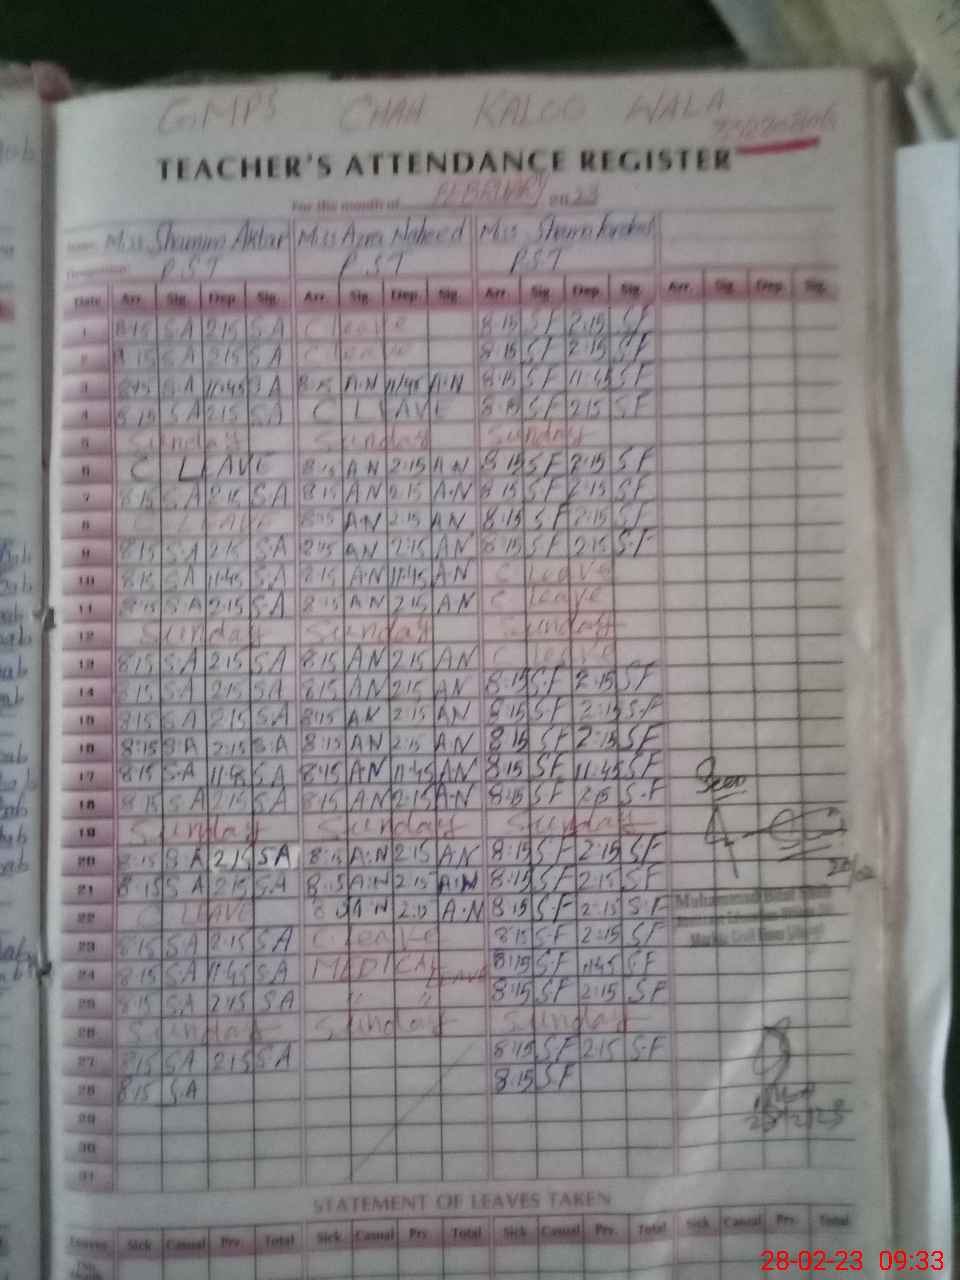 GMPS CHAH KALOO WALA
TEACHER'S ATTENDANCE REGISTER
For the month of FEBRUARY 2023
Miss Shamim Aktar Miss Azra Naheed Miss
P.S.T P.S.T P.S.T
Date Arr. Sig. Dep. Sig. Arr. Sig. Dep. Sig. Arr. Sig. Dep. Sig. Arr. Sig. Dep. Sig.
1 8:15 S.A 2:15 S.A C leave 8:15 S.F 2:15 S.F
2 8:15 S.A 2:15 S.A C leave 8:15 S.F 2:15 S.F
3 8:15 S.A 11:45 S.A 8:15 A.N 11:45 A.N 8:15 S.F 11:45 S.F
4 8:15 S.A 2:15 S.A C LEAVE 8:15 S.F 2:15 S.F
5 Sunday Sunday Sunday
6 C LEAVE 8:15 A.N 2:15 A.N 8:15 S.F 2:15 S.F
7 8:15 S.A 2:15 S.A 8:15 A.N 2:15 A.N 8:15 S.F 2:15 S.F
8 C LEAVE 8:15 A.N 2:15 A.N 8:15 S.F 2:15 S.F
9 8:15 S.A 2:15 S.A 8:15 A.N 2:15 A.N 8:15 S.F 2:15 S.F
10 8:15 S.A 11:45 S.A 8:15 A.N 11:45 A.N C leave
11 8:15 S.A 2:15 S.A 8:15 A.N 2:15 A.N C leave
12 Sunday Sunday Sunday
13 8:15 S.A 2:15 S.A 8:15 A.N 2:15 A.N C leave
14 8:15 S.A 2:15 S.A 8:15 A.N 2:15 A.N 8:15 S.F 2:15 S.F
15 8:15 S.A 2:15 S.A 8:15 A.N 2:15 A.N 8:15 S.F 2:15 S.F
16 8:15 S.A 2:15 S.A 8:15 A.N 2:15 A.N 8:15 S.F 2:15 S.F
17 8:15 S.A 11:45 S.A 8:15 A.N 11:45 A.N 8:15 S.F 11:45 S.F
18 8:15 S.A 2:15 S.A 8:15 A.N 2:15 A.N 8:15 S.F 2:15 S.F
Seen
19 Sunday Sunday Sunday
20 8:15 S.A 2:15 S.A 8:15 A.N 2:15 A.N 8:15 S.F 2:15 S.F
21 8:15 S.A 2:15 S.A 8:15 A.N 2:15 A.N 8:15 S.F 2:15 S.F
22 C LEAVE A.N 2:15 A.N 8:15 S.F 2:15 S.F
Muhammad
23 8:15 S.A 2:15 S.A C leave 8:15 S.F 2:15 S.F
24 8:15 S.A 11:45 S.A MEDICAL LEAVE 8:15 S.F 11:45 S.F
25 8:15 S.A 2:15 S.A " " 8:15 S.F 2:15 S.F
26 Sunday Sunday Sunday
27 8:15 S.A 2:15 S.A 8:15 S.F 2:15 S.F
28 8:15 S.A 8:15 S.F
29
30
31
STATEMENT OF LEAVES TAKEN
Leaves Sick Casual Prv. Total Sick Casual Prv. Total Sick Casual Prv. Total Sick Casual Prv. Total
28-02-23 09:33